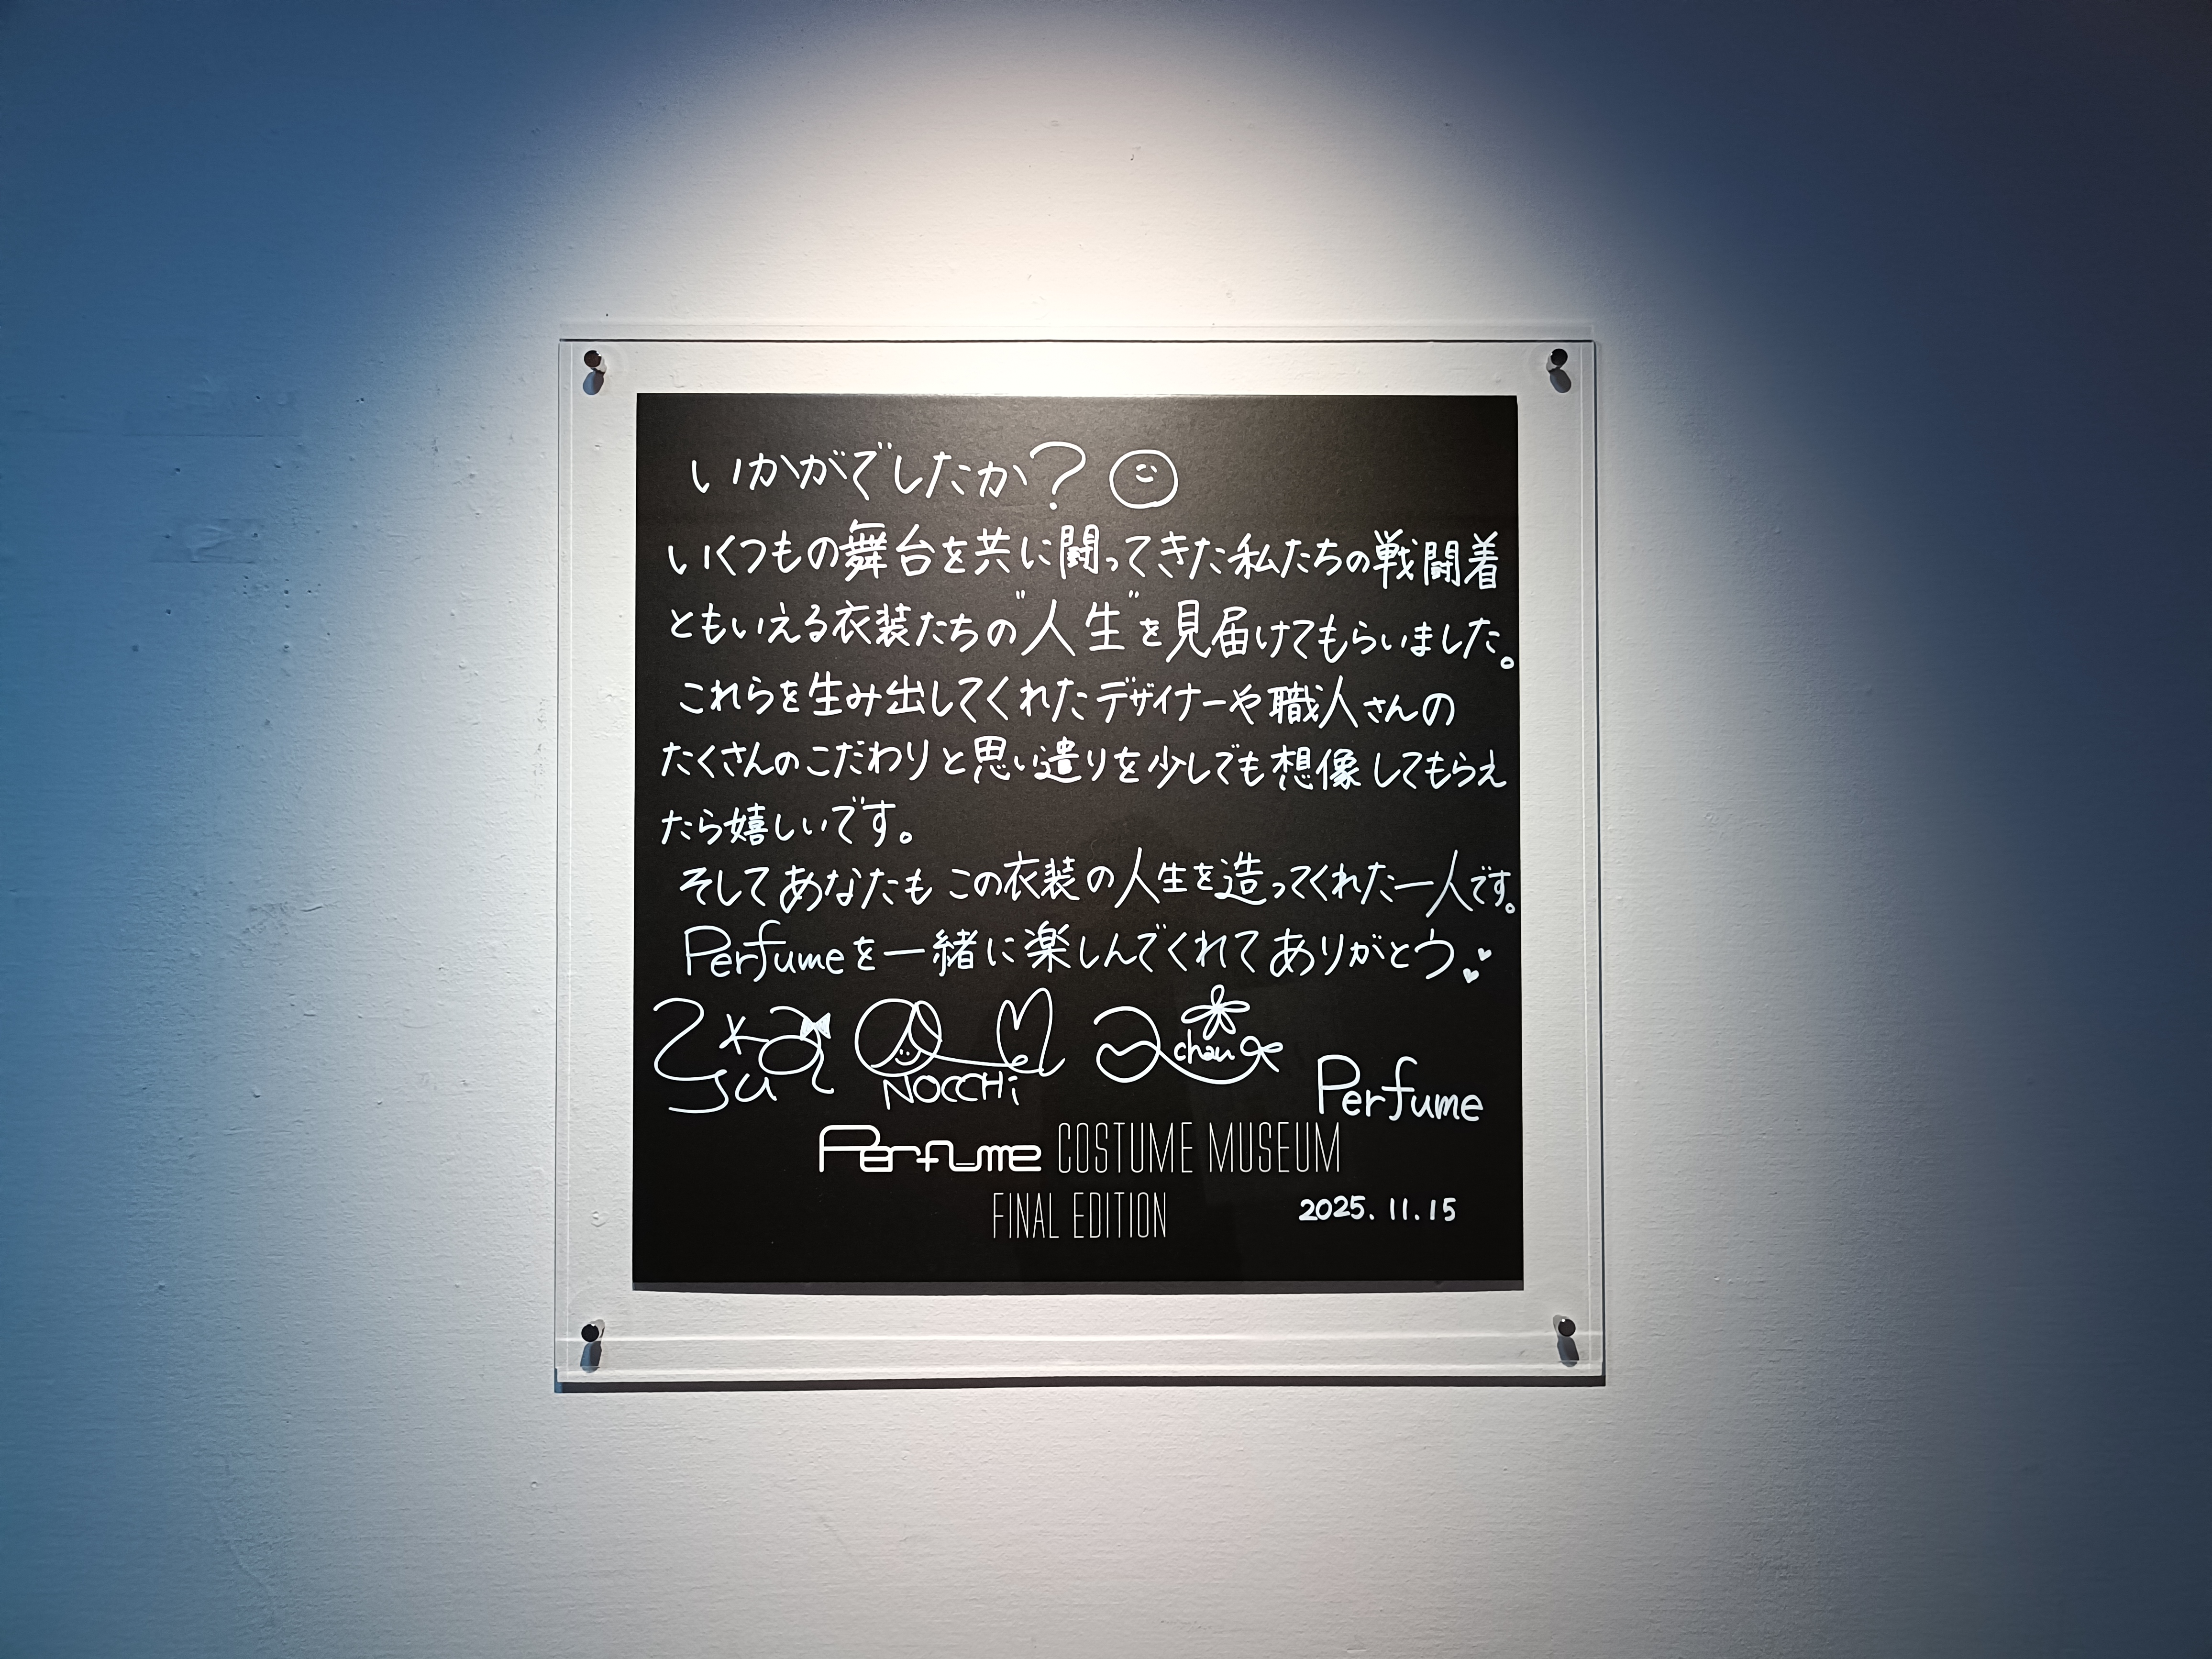 いかがでしたか?
いくつもの舞台を共に闘ってきた私たちの戦闘着
ともいえる衣装たちの"人生"を見届けてもらいました。
これらを生み出してくれたデザイナーや職人さんの
たくさんのこだわりと思い遣りを少しでも想像してもらえ
たら嬉しいです。
そしてあなたもこの衣装の人生を造ってくれた一人です。
Perfumeを一緒に楽しんでくれてありがとう
NOCCHi
chan
Perfume
Perfume COSTUME MUSEUM
FINAL EDITION
2025.11.15